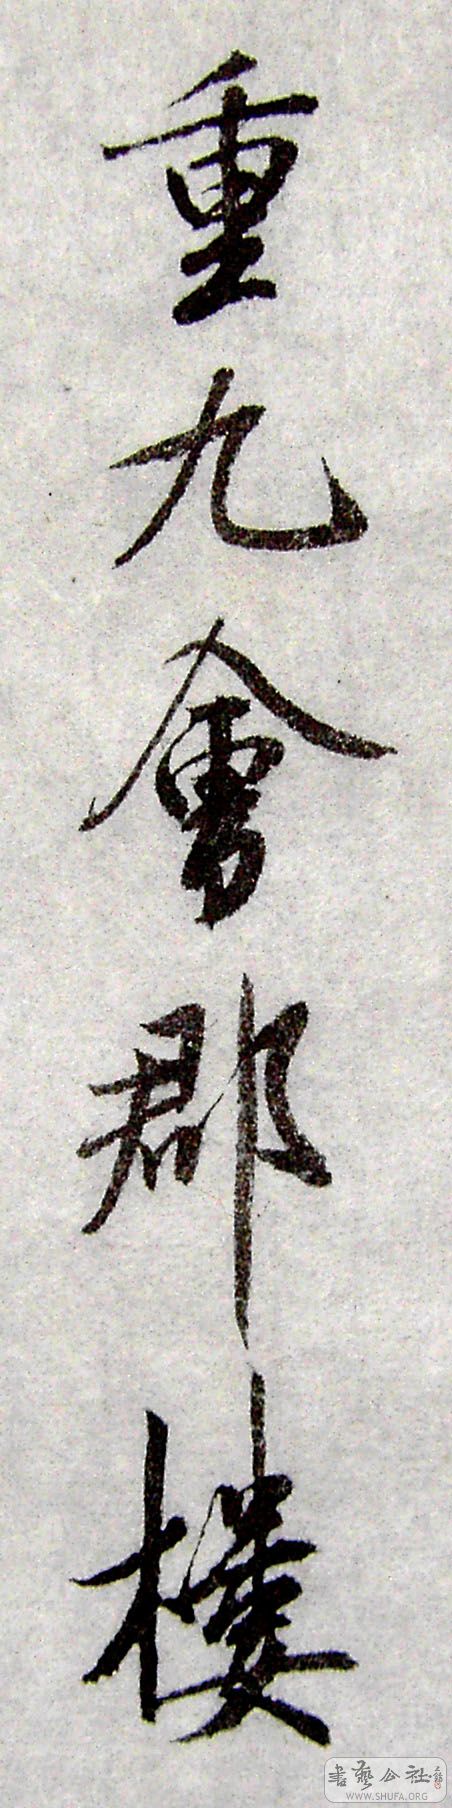 重九會郡樓
書藝公社
WWW.SHUFA.ORG